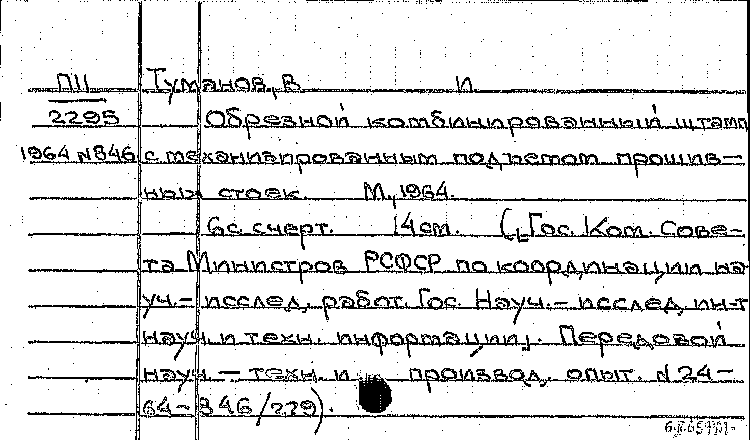 ПII Туманов, В И
2295 Обрезной комбинированный штамп
1964 N 846 с механизированным подъемом прошив-
ных стоек. М., 1964.
6 с. с черт. 14 см. (Гос. Ком. Сове-
та Министров РСФСР по координации на
уч.- исслед. работ. Гос. Науч.- исслед. ин-т
науч. и техн. информации. Передовой
науч. - техн. и производ. опыт. N 24-
64-846/229).